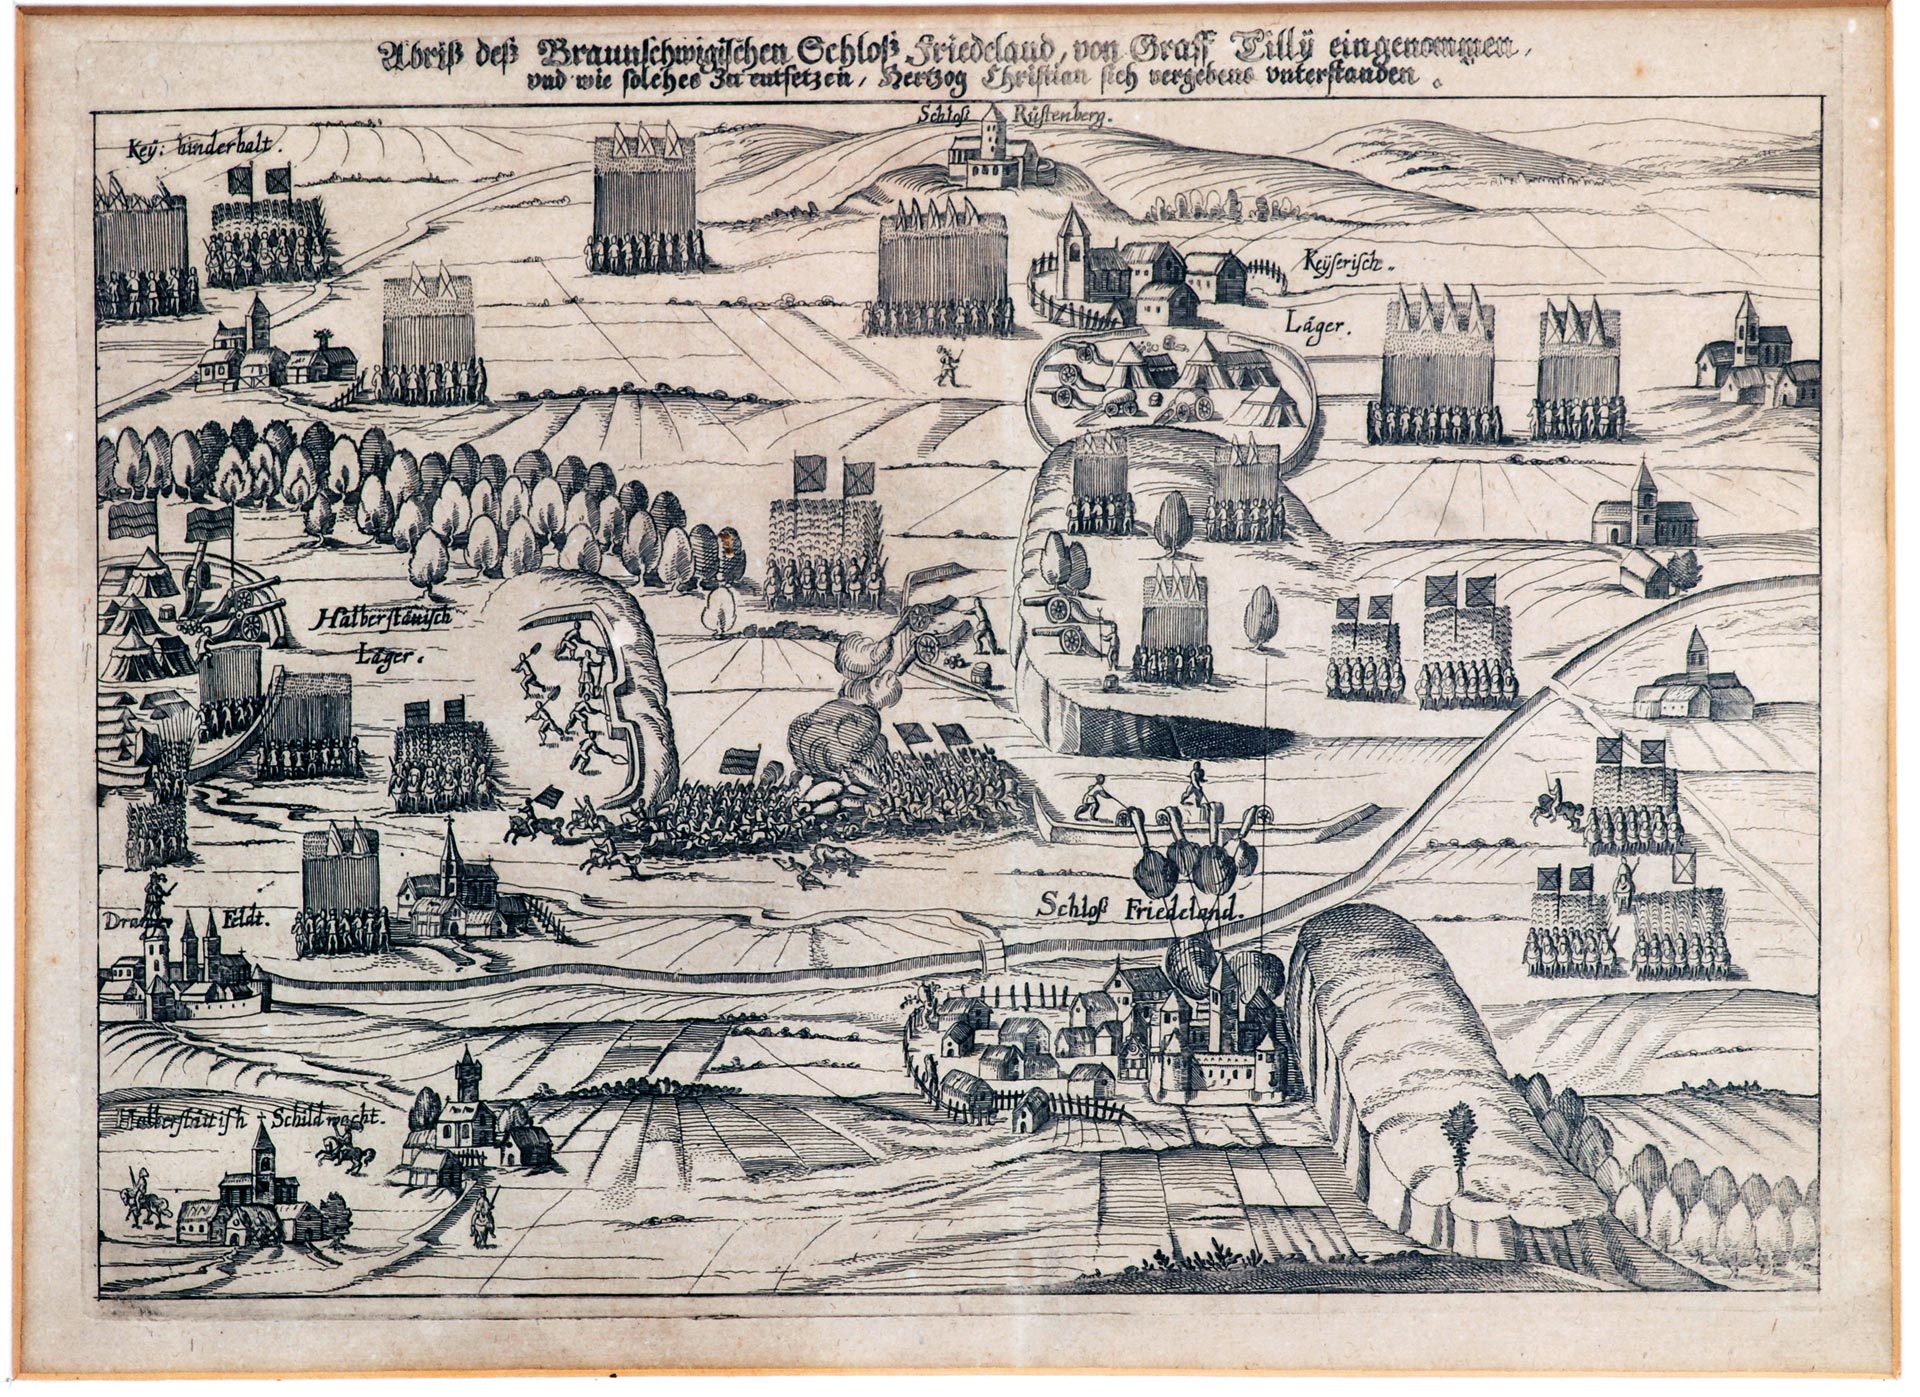 Abriß deß Braunschwigischen Schloß Friedeland, von Graff Tillÿ eingenommen,
vnd wie solches Zu entsetzen, Hertzog Christian sich vergebens vnterstanden.
Schloß Rüstenberg.
Keÿ: hinderhalt.
Keÿserisch..
Läger.
Halberstätisch
Läger.
Schloß Friedeland.
Feldt.
Halberstätish Schildwacht.